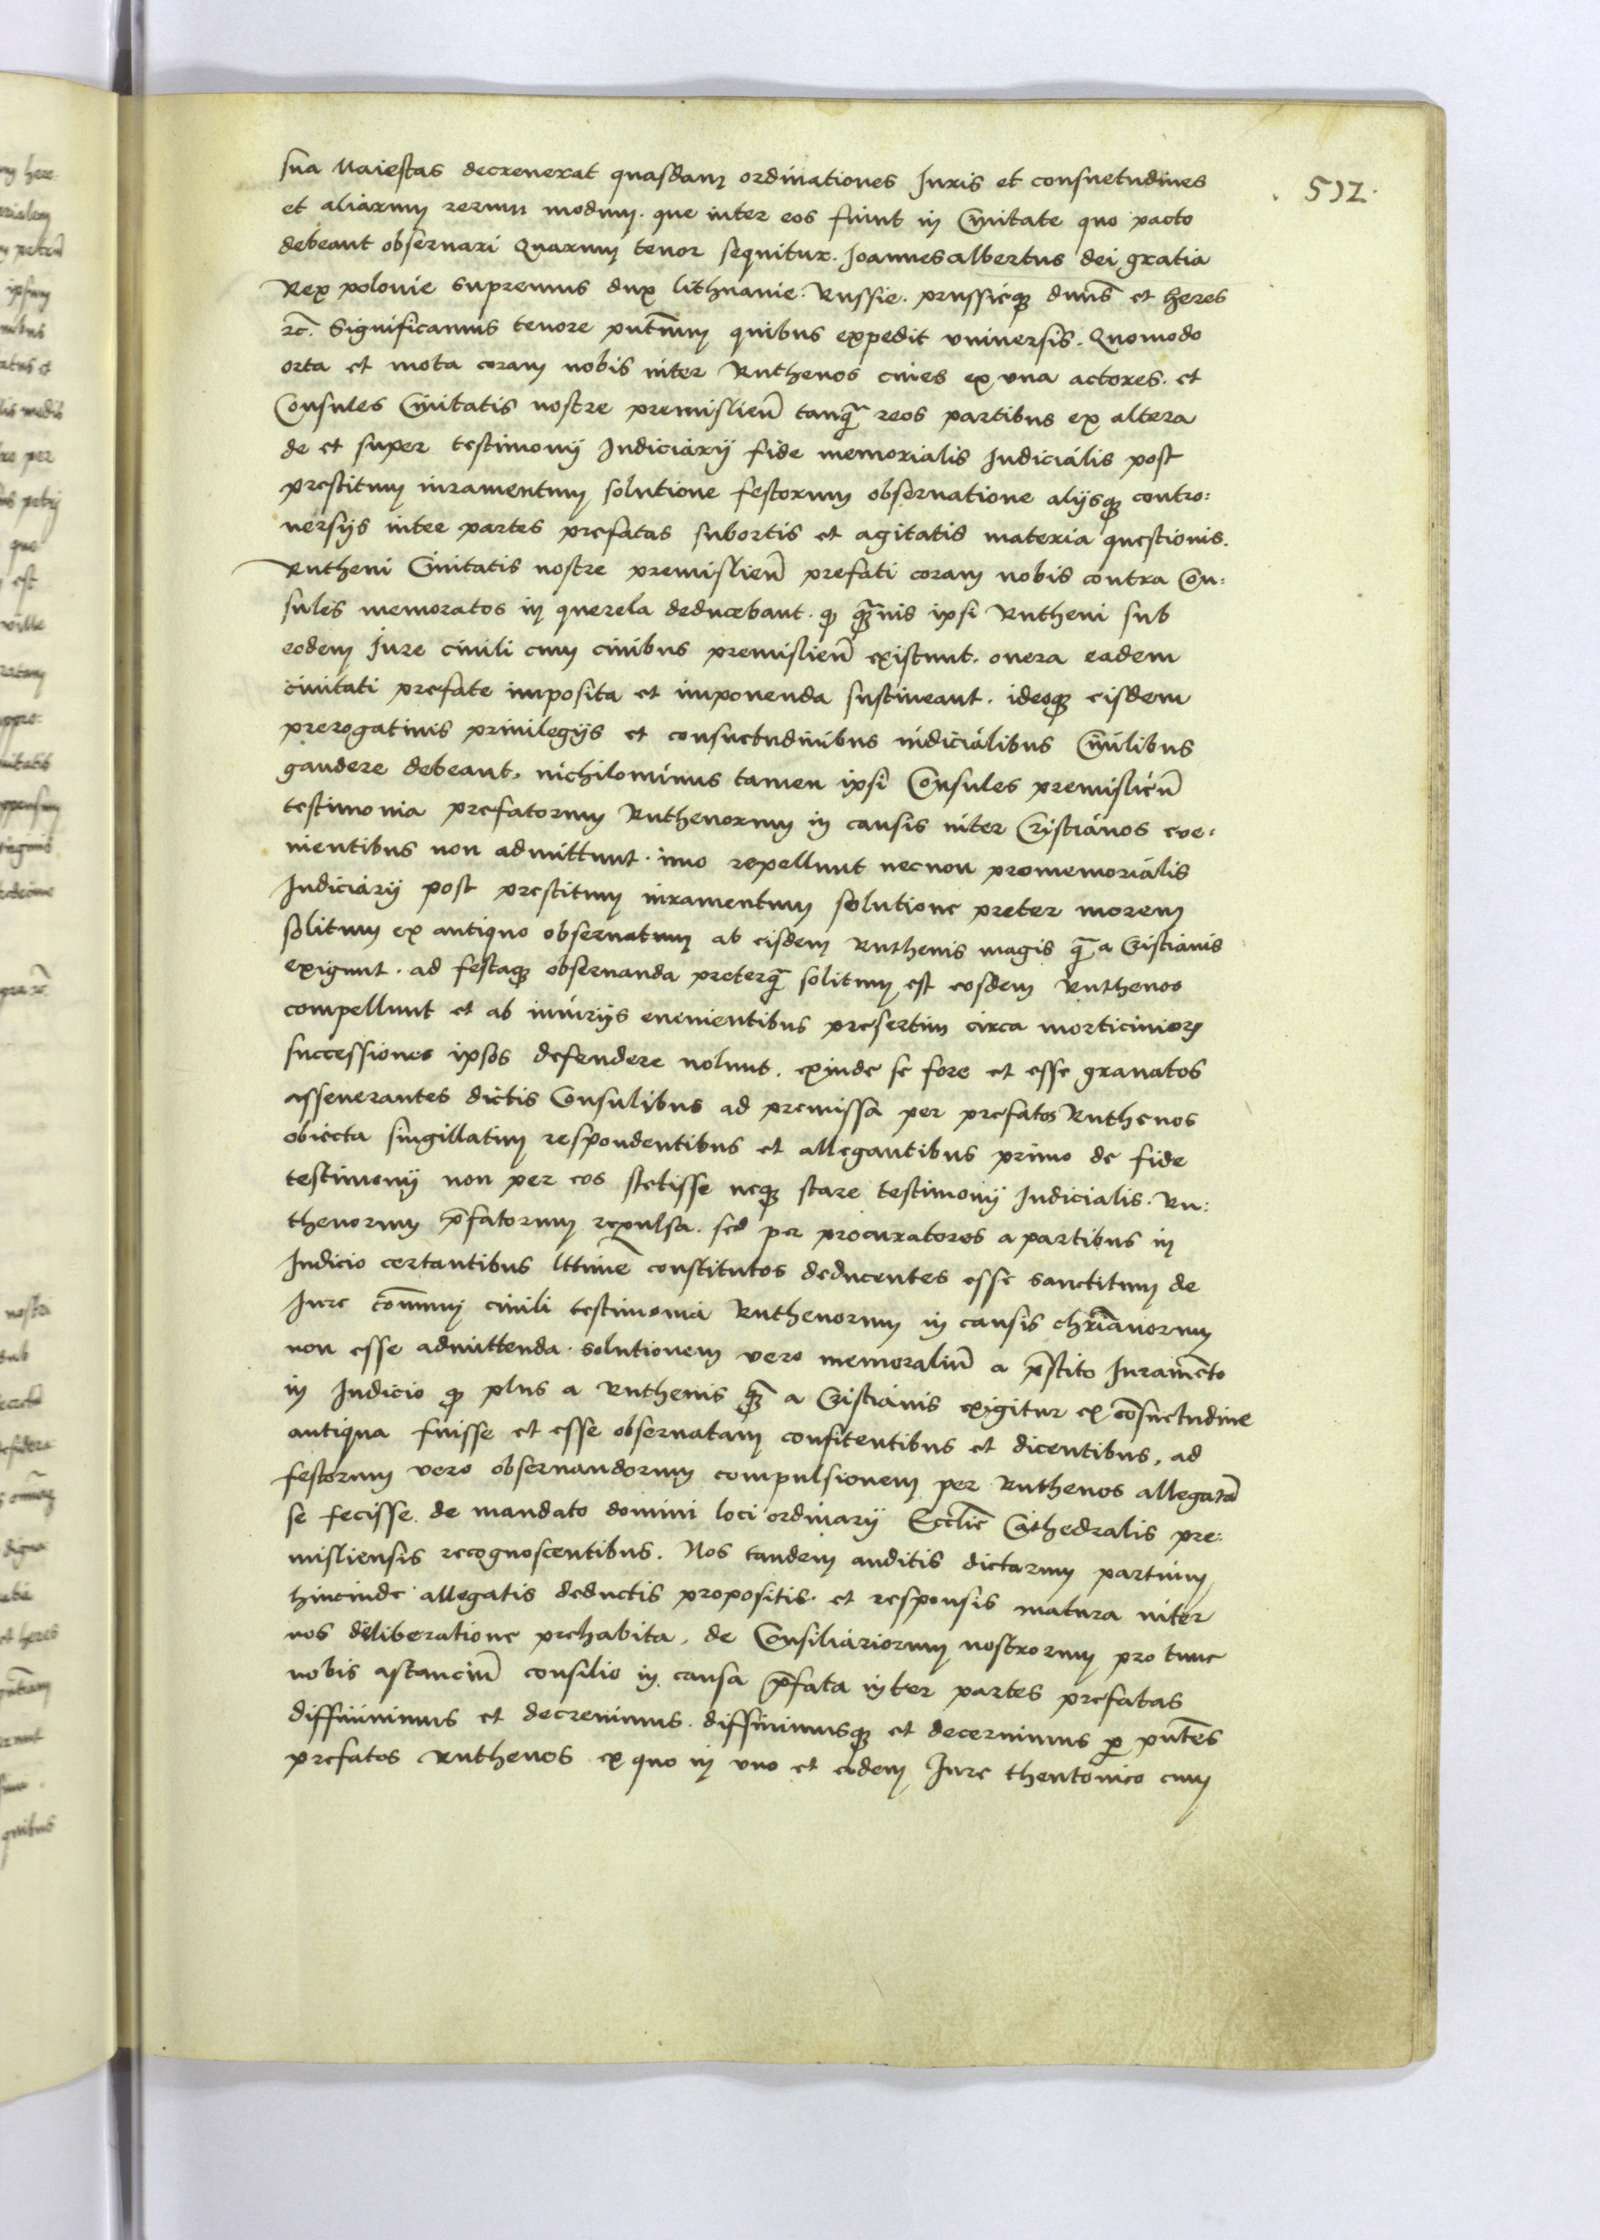 . 512.
sua Maiestas decreuerat quasdam ordinationes Juris et consuetudines
et aliarum rerum modum. que inter eos fiunt in Ciuitate quo pacto
debeant obseruari Quarum tenor sequitur. Joannes albertus dei gratia
Rex polonie supremus dux lithuanie. Russie. prussieq3 dnus et heres
rc. Significamus tenore pntium quibus expedit vniuersis. Quomodo
orta et mota coram nobis inter Ruthenos ciues ex vna actores. et
Consules Ciuitatis nostre premislien tanq3 reos partibus ex altera
de et super testimonij Judiciarij fide memorialis Judicialis post
prestitum iuramentum solutione festorum obseruatione alijsq3 contro:
uersijs inter partes prefatas subortis et agitatis materia questionis.
Rutheni Ciuitatis nostre premislien prefati coram nobis contra Con:
sules memoratos in querela deducebant. q q3uis ipsi Rutheni sub
eodem Jure ciuili cum ciuibus premislien existunt. onera eadem
ciuitati prefate imposita et imponenda sustineant. ideoq3 eisdem
prerogatiuis priuilegijs et consuetudinibus iudicialibus Ciuilibus
gaudere debeant. nichilominus tamen ipsi Consules premislien
testimonia prefatorum Ruthenorum in causis inter Cristianos eue:
nientibus non admittunt. imo repellunt necnon promemorialis
Judiciarij post prestitum iuramentum solutione preter morem
solitum ex antiquo obseruatum ab eisdem Ruthenis magis q3 a Cristianis
exigunt. ad festaq3 obseruanda preterq3 solitum est eosdem Ruthenos
compellunt et ab iniurijs euenientibus presertim circa morticinior
successiones ipsos defendere nolunt. exinde se fore et esse grauatos
asseuerantes dictis Consulibus ad premissa per prefatos Ruthenos
obiecta singillatim respondentibus et allegantibus primo de fide
testimonij non per eos stetisse neq3 stare testimonij Judicialis. Ru:
thenorum pfatorum repulsa. sed per procuratores a partibus in
Judicio certantibus lttime constitutos deducentes esse sanctitum de
Jure comuni ciuili testimonia Ruthenorum in causis chrianorum
non esse admittenda. solutionem vero memoraliu a pstito Juramento
in Judicio q plus a Ruthenis q3 a Cristianis exigitur ex cosuetudine
antiqua fuisse et esse obseruatam confitentibus et dicentibus, ad
festorum vero obseruandorum compulsionem per Ruthenos allegata
se fecisse de mandato domini loci ordinarij Ecclie Cathedralis pre:
misliensis recognoscentibus. Nos tandem auditis dictarum partium
hincinde allegatis deductis propositis. et responsis matura inter
nos deliberatione prehabita. de Consiliariorum nostrorum pro tunc
nobis astanciu consilio in causa pfata inter partes prefatas
diffiniuimus et decreuimus. diffinimusq3 et decernimus p pntes
prefatos Ruthenos ex quo in vno et eodem Jure theutonico cum